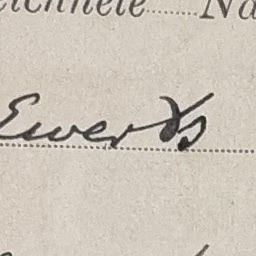 eichnete Na
Ewerts